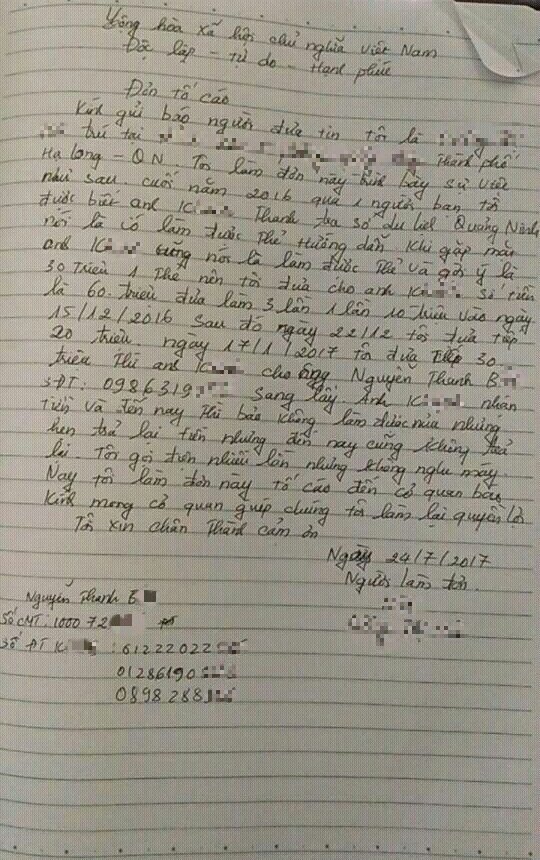 Cộng hòa xã hội chủ nghĩa Việt Nam
Độc lập - tự do - Hạnh phúc
Đơn tố cáo
Kính gửi báo người đưa tin tôi là
trú tại Thành phố
Hạ long - QN. Tôi làm đơn này trình bày sự việc
như sau. cuối năm 2016 qua 1 người bạn tôi
được biết anh K Thanh tra sở du lịch Quảng Ninh
nói là có làm được Thẻ Hướng dẫn. Khi gặp mặt
anh K cũng nói là làm được Thẻ và gợi ý là
30 Triệu 1 Thẻ nên tôi đưa cho anh K số tiền
là 60. Triệu đưa làm 3 lần 1 lần 10 triệu vào ngày
15/12/2016 sau đó ngày 22/12 tôi đưa tiếp
20 triệu. ngày 17/1/2017 tôi đưa tiếp 30
triệu Thì anh K cho ông Nguyễn Thanh B
SĐT: 0986319 sang lấy. Anh K nhận
tiền và đến nay Thì bảo không làm được nữa nhưng
hẹn trả lại tiền nhưng đến nay cũng không trả
lại. Tôi gọi điện nhiều lần nhưng không nghe máy.
Nay tôi làm đơn này tố cáo đến cơ quan báo
Kính mong cơ quan giúp chúng tôi làm lại quyền lợi
Tôi xin chân Thành cảm ơn
Ngày 24/7/2017
Người làm đơn.
Nguyễn Thanh B
Số CMT: 1000 72
Số ĐT K : 61222022
01286190
0898 288